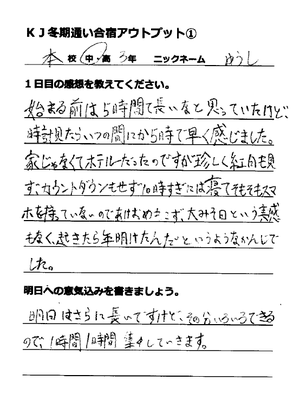 KJ冬期通い合宿アウトプット①
本校 中・高 3年 ニックネーム ゆうし
1日目の感想を教えてください。
始まる前は5時間で長いなと思っていたけど、
時計見たらいつの間にか5時で早く感じました。
家じゃなくてホテルだったのですが珍しく紅白も見
ず、カウントダウンもせず10時すぎには寝てそもそもスマ
ホを持っていないのであけおめもこず、大みそ日という実感
もなく、起きたら年明けたんだというようなかんじで
した。
明日への意気込みを書きましょう。
明日はさらに長いですけど、その分いろいろできる
ので、1時間1時間集中していきます。